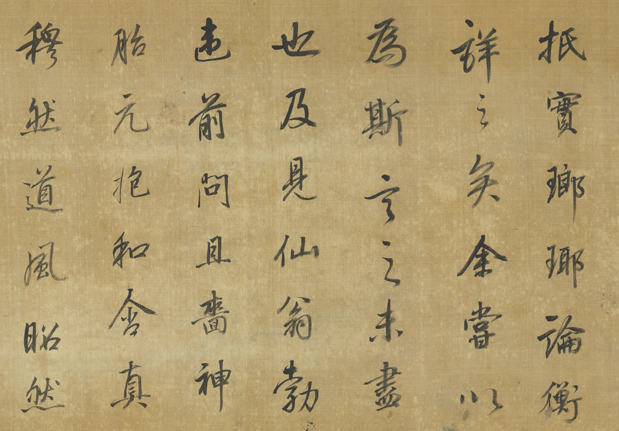 抵實瑯瑘論衡
詳之矣余嘗以
為斯言之未盡
也及見仙翁勃
違前問且嗇神
胎元抱和含真
穆然道風昭然